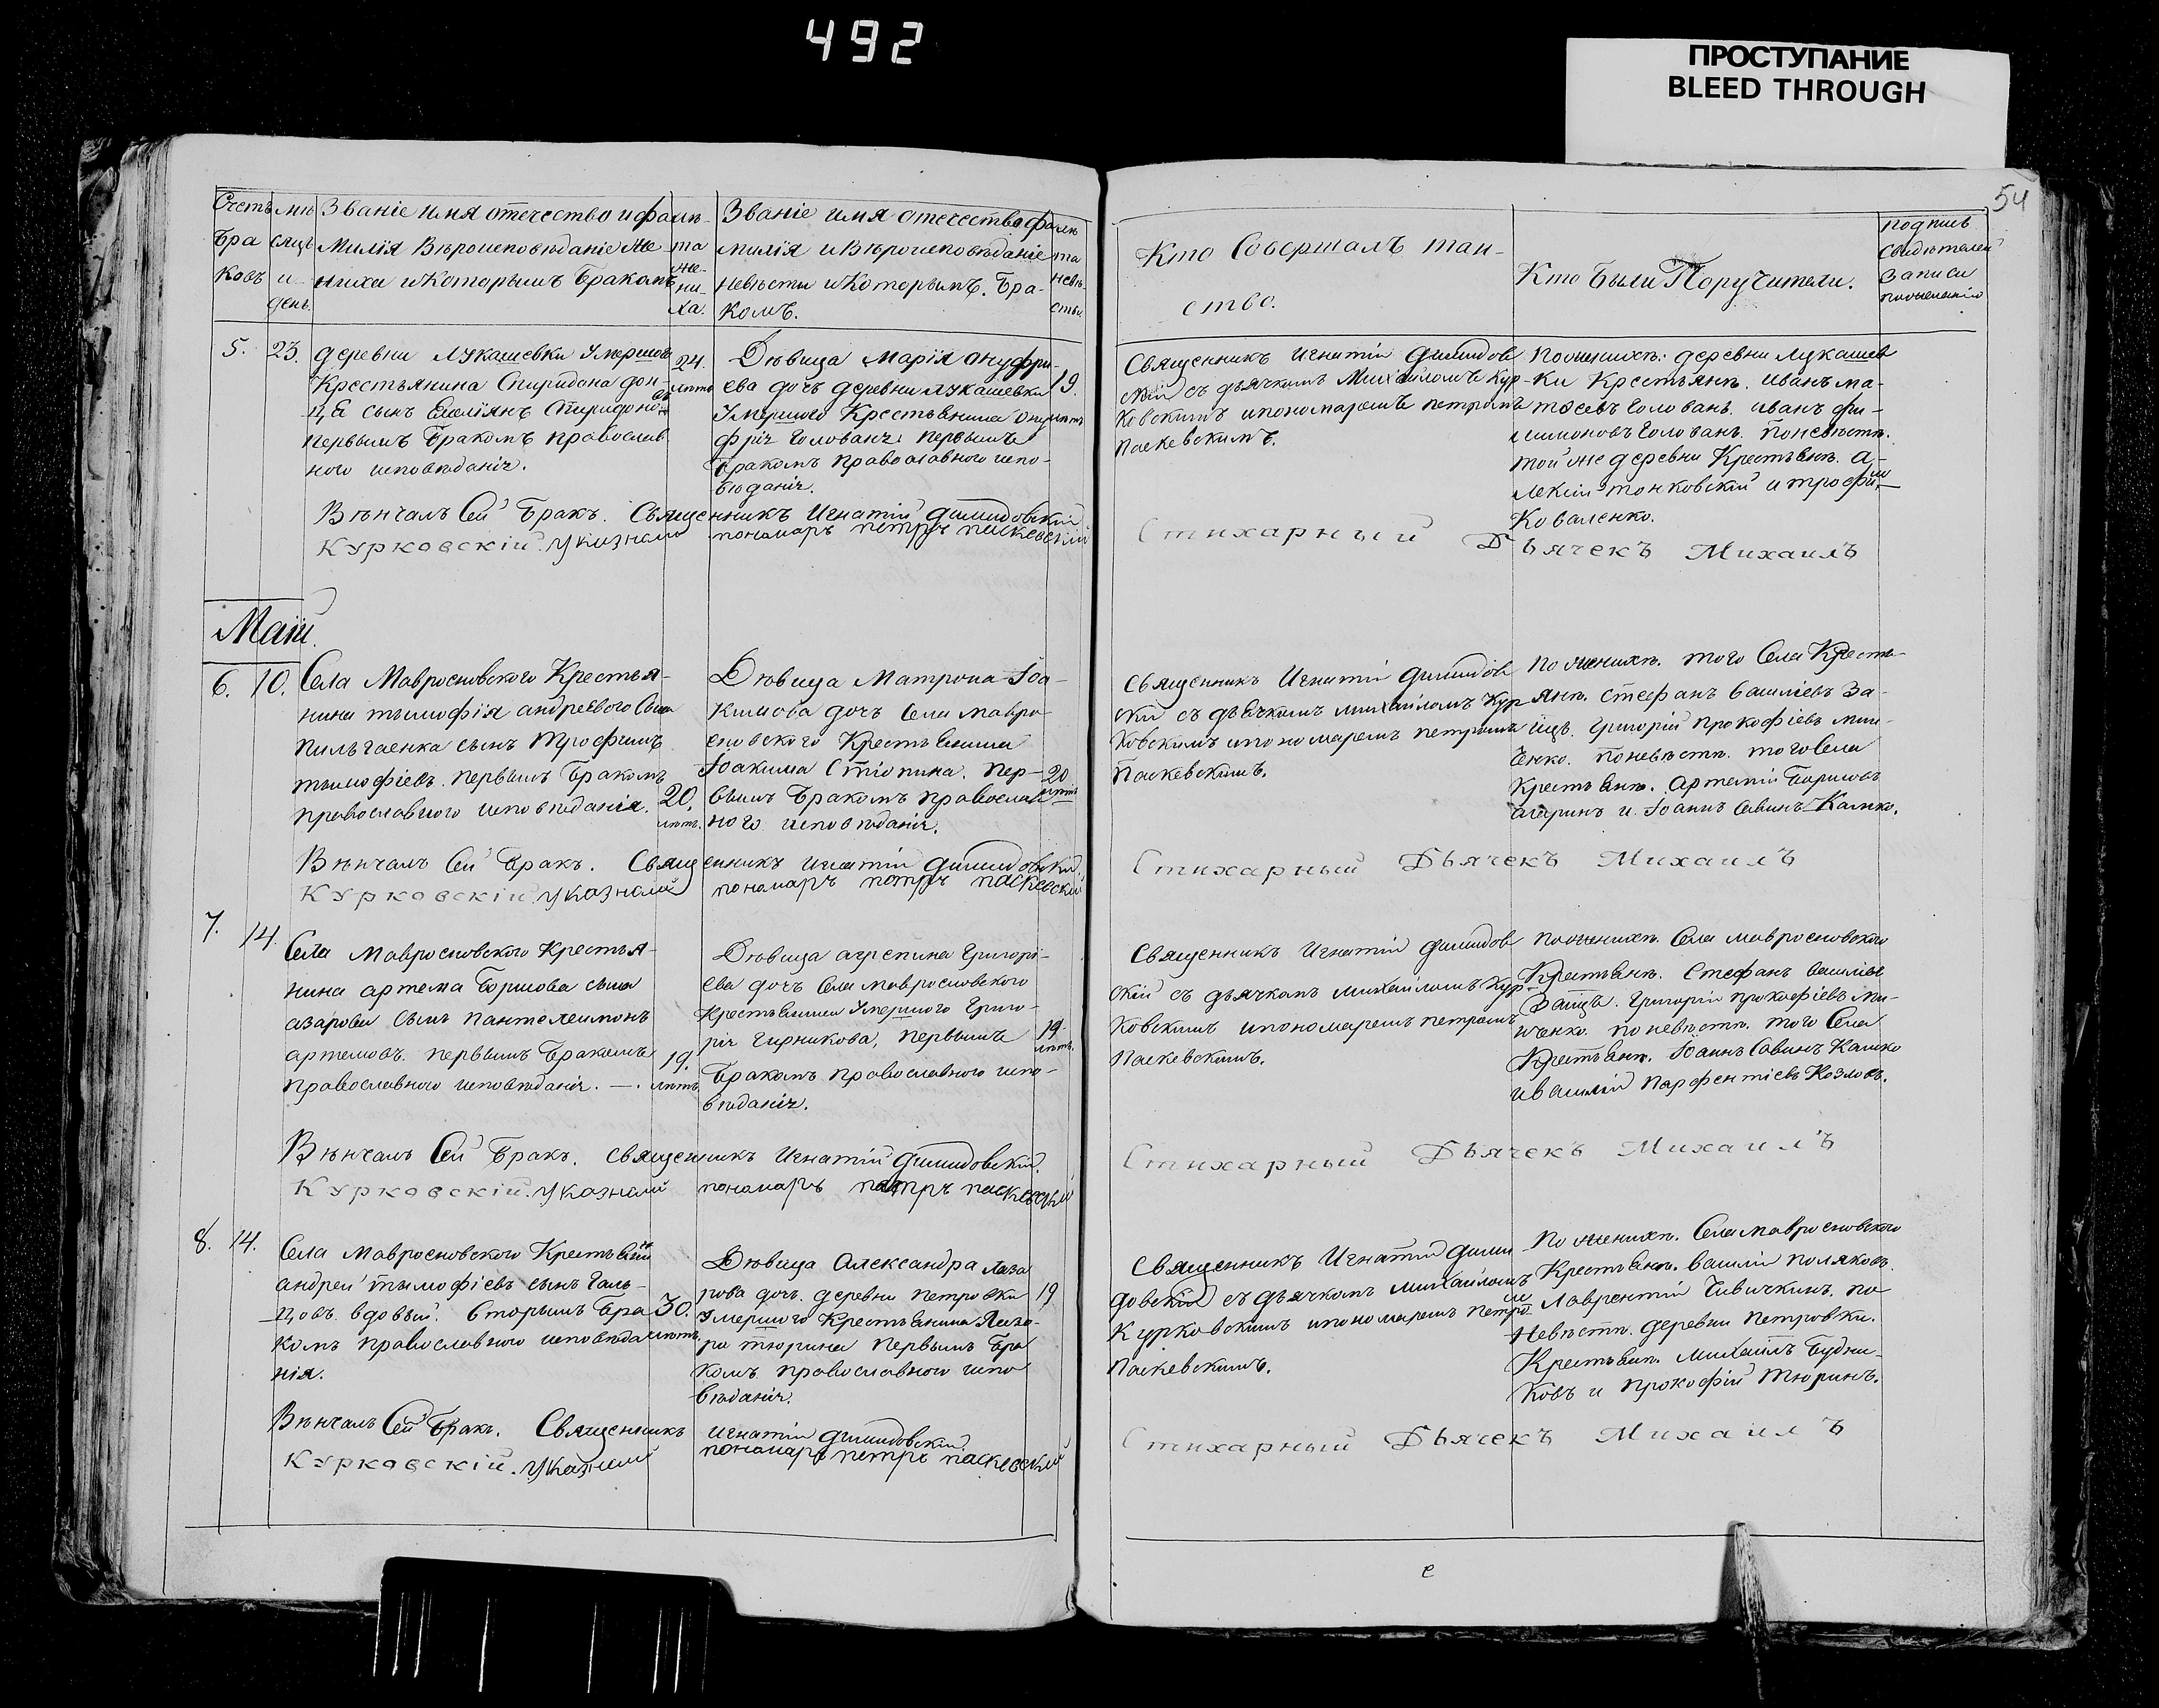 492
ПРОСТУПАНИЕ
BLEED THROUGH
54
Счетъ бра ковъ
мѣ сяцъ и день.
Званіе имя отечество и фа
милія Вѣроисповѣданіе же
ниха и Которымъ Бракомъ
лѣ та же ни ха.
Званіе имя отечество фа
милія и Вѣроисповѣданіе
невѣсты и Которымъ. Бра-
комъ.
лѣ та невѣ сты.
Кто Совершалъ таи-
ство.
Кто Были Поручители.
подпись
свидѣтелей
записи
5.
23.
деревни Лукашевки Умершов
Крестьянина Спиридона дон-
ца сынъ Емеліянъ Спиридоно въ
первымъ Бракомъ православ
ного исповѣданія.
24. лѣтъ
Дѣвица Марія Онуфрі-
ева дочъ деревни Лукашевки
Умершого Крестьянина Ону
фрія Голована первымъ
Бракомъ православного испо-
вѣданія.
19. лѣтъ
Священникъ Игнатій Димидов
скій съ дьячкомъ Михайломъ Кур-
ковскимъ и пономаремъ петромъ
Паскевскимъ.
По женихѣ: деревни Лукашев
ки Крестьянѣ. Иванъ ма-
тѳеевъ Голованъ. Иванъ фи-
лимоновъ Голованъ. По невѣстѣ.
той же деревни Крестьянѣ. А-
лексій тонковскій и трофимъ
Коваленко.
Вѣнчалъ Сей Бракъ. Священникъ Игнатій Димидовскій
Стихарный Дьячекъ Михаилъ
Курковскій. Указной пономаръ петръ паскевскій
Маій.
6.
10.
Села Мавросновского Крестья-
нина тымофія андреевого сына
Пильгаенка сынъ Трофимъ
тымофіевъ. первымъ Бракомъ
православного исповѣданія.
20. лѣтъ.
Дѣвица Матрона Іоа-
кимова дочъ Села Мавро-
сновского Крестьянина
Іоакима Стіопина. Пер-
вымъ Бракомъ православ
ного исповѣданія.
20 лѣтъ
Священникъ Игнатій Димидов
скій съ дьячкомъ Михайломъ Кур
ковскимъ и пономаремъ петромъ
Паскевскимъ.
По женихѣ. того Села Кресть-
янѣ. Стефанъ Василіевъ За-
яцъ. Григорій Прокофіевъ мин-
ченко. По невѣстѣ. того Села
Крестьянѣ. Артемій Борисовъ
азаринъ и Іоаннъ Савинъ Калко.
Вѣнчалъ Сей Бракъ. Священникъ Игнатій Димидовскій.
Стихарный Дьячекъ Михаилъ
Курковскій. Указной пономаръ петръ паскевскій
7.
14.
Села Мавросновского Крестья-
нина артема Борисова сына
азарова сынъ пантелеимонъ
артемовъ. первымъ Бракомъ
православного исповѣданія. —.
19. лѣтъ
Дѣвица агрепина Григорі-
ева дочъ Села Мавросновского
Крестьянина Умершого Григо-
рія Гирникова, первымъ
Бракомъ православного испо-
вѣданія.
19 лѣтъ.
Священникъ Игнатій Димидов
скій съ дьячкомъ Михайломъ Кур-
ковскимъ и пономаремъ петромъ
Паскевскимъ.
По женихѣ. Села мавросновского
Крестьянѣ. Стефанъ Василіев
Заяцъ. Григорій прокофіевъ ми-
нченко. по невѣстѣ. того Села
Крестьянѣ. Іоаннъ Савинъ Калко
и Василій Парфентіевъ Козловъ.
Вѣнчалъ Сей Бракъ. Священникъ Игнатій Димидовскій.
Стихарный Дьячекъ Михаилъ
Курковскій. Указной пономаръ петръ паскевскій
8.
14.
Села Мавросновского Крестьянинъ
андрей тымофіевъ сынъ Галь-
цовъ вдовый. Вторымъ Бра
комъ православного исповѣда
нія.
30. лѣтъ.
Дѣвица Александра Лаза
рова дочъ. деревни петровки
Умершого Крестьянина Лаза-
ра тюрина первымъ Бра
комъ православного испо
вѣданія.
19
Священникъ Игнатій Дими
довскій съ дьячкомъ Михайломъ
Курковскимъ и пономаремъ петромъ
Паскевскимъ.
По женихѣ. Села мавросновского
Крестьянѣ. Василій поляковъ.
Лаврентій Чивичкинъ. по
Невѣстѣ. деревни петровки.
Крестьянѣ. Михаилъ Будни-
ковъ и прокофій тюринъ.
Вѣнчалъ Сей Бракъ. Священникъ Игнатій Димидовскій.
Стихарный Дьячекъ Михаилъ
Курковскій. Указной пономаръ петръ паскевскій